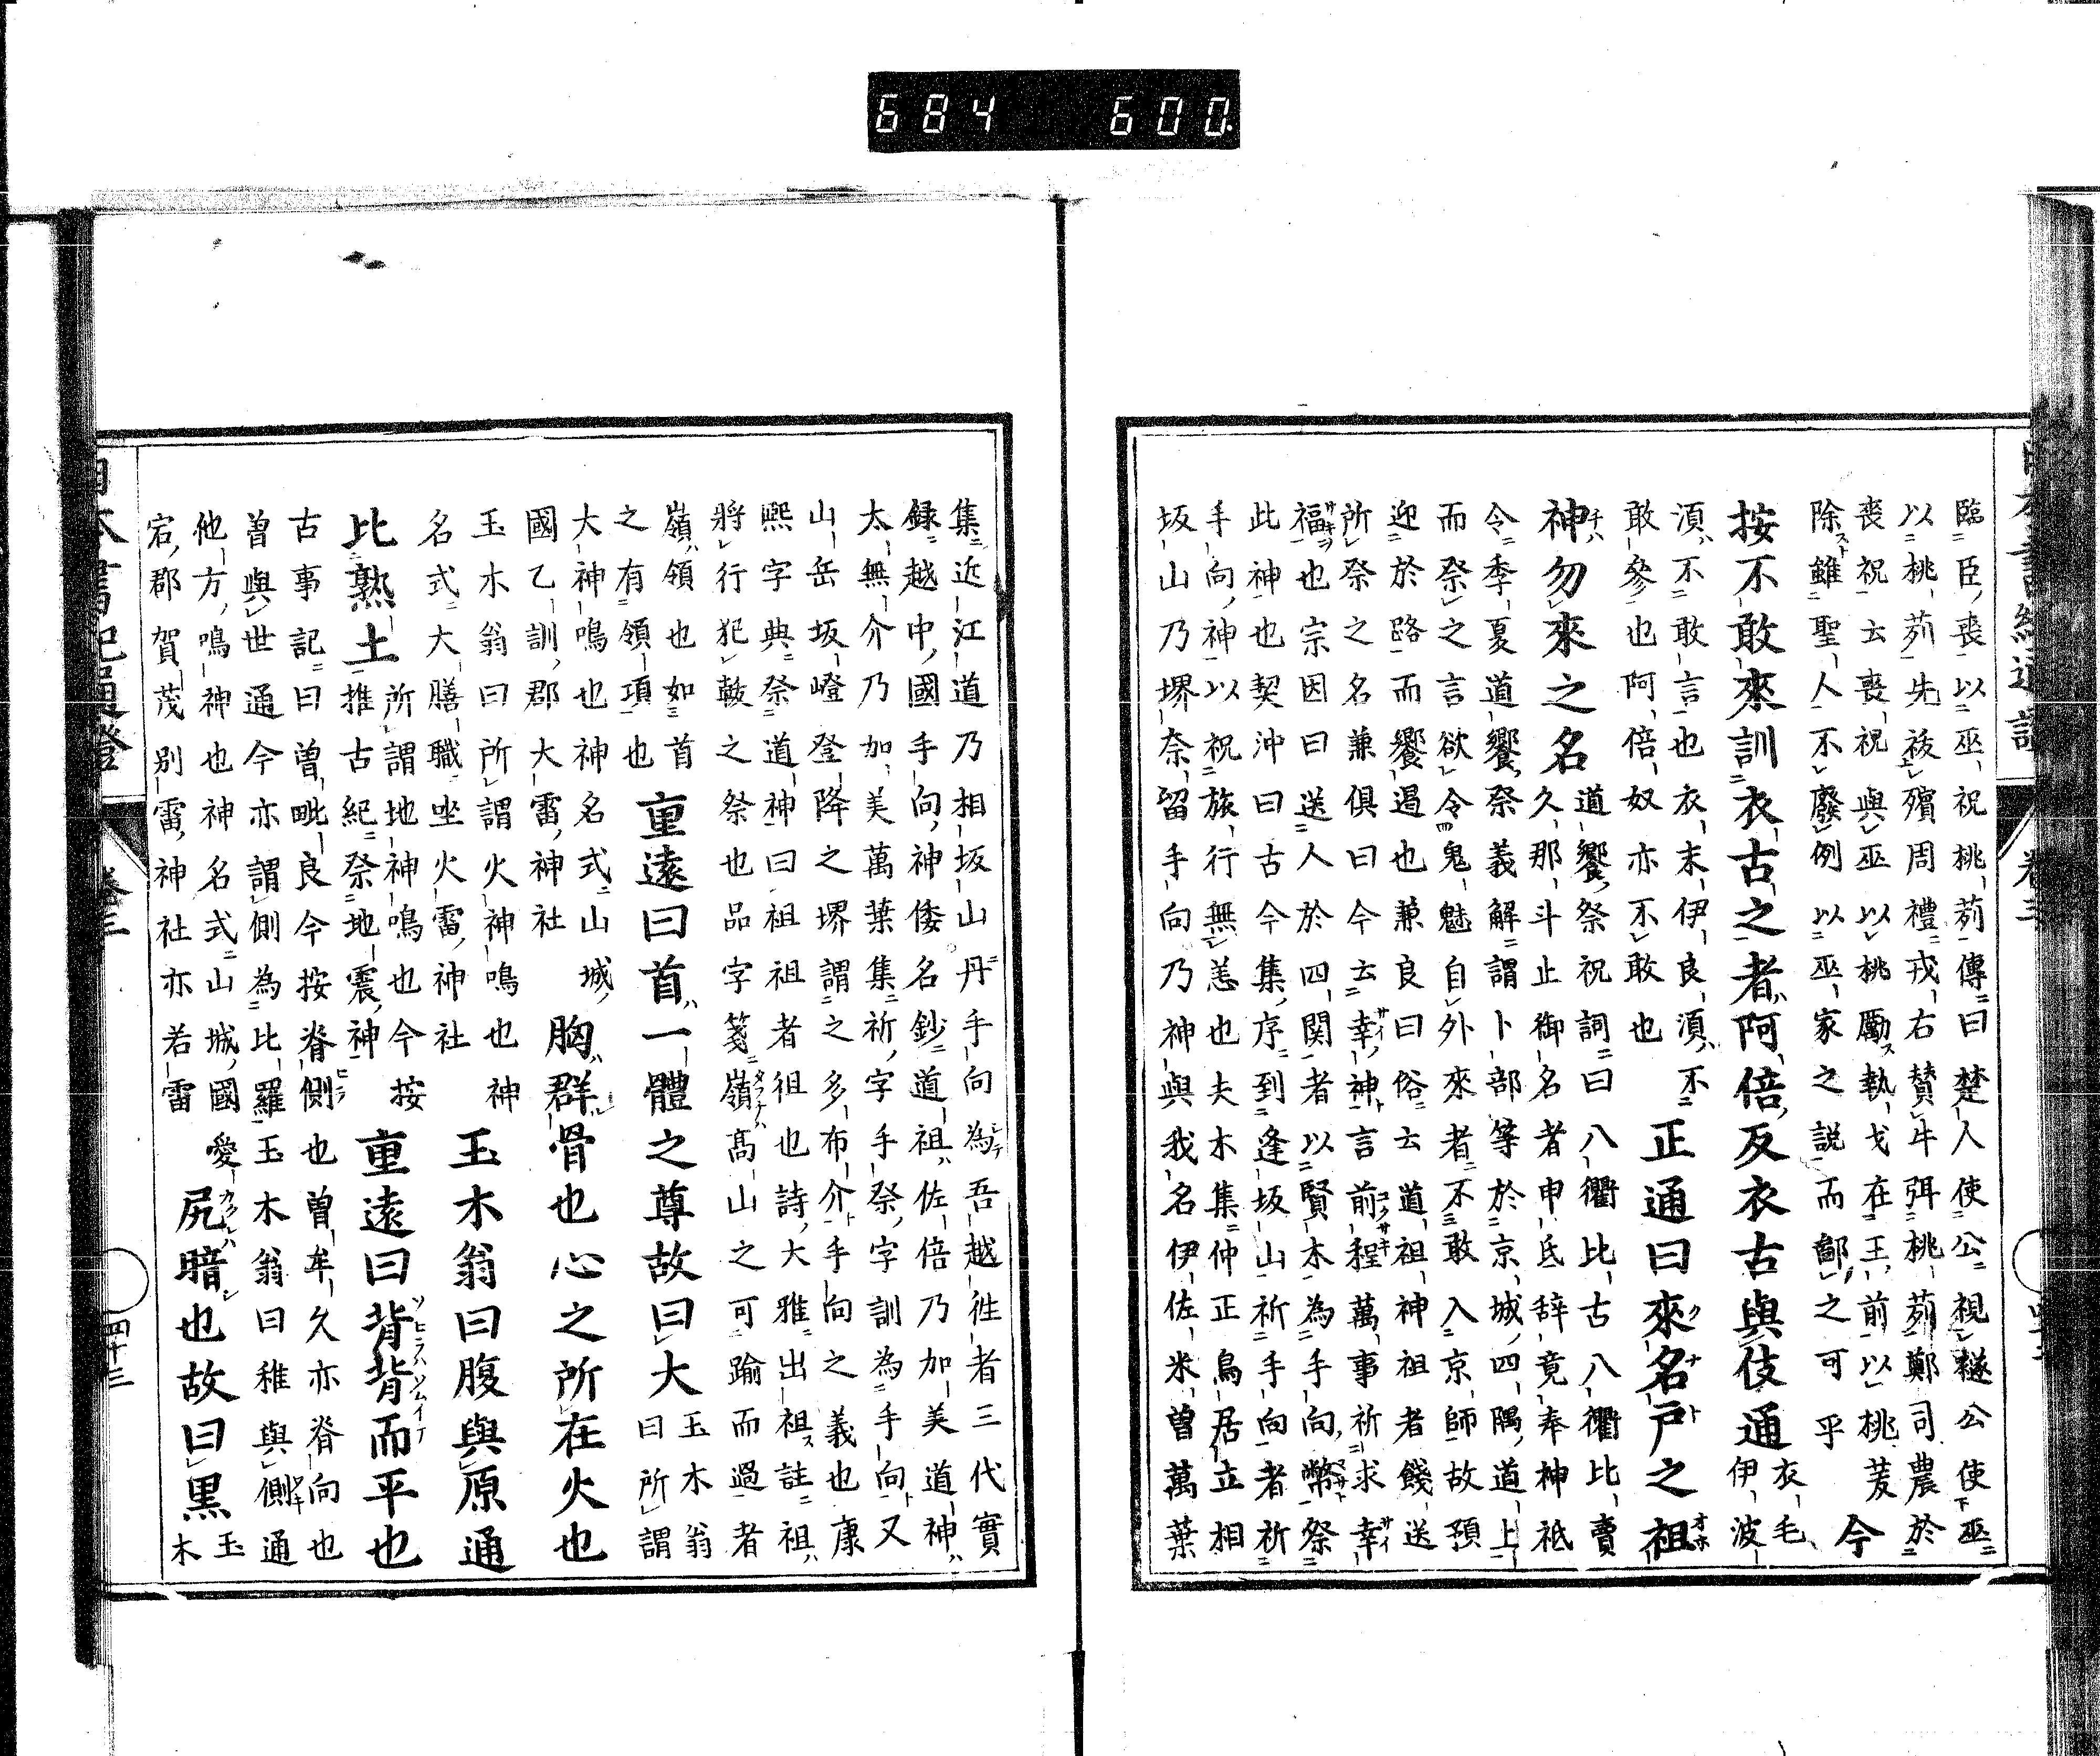 684 600
臨臣喪以巫祝桃茢傳曰楚人使公視襚公使巫
以桃茢先祓殯周禮戎右賛牛弭桃茢鄭司農於
喪祝云喪祝與巫以桃勵執戈在王前以桃茇
除雖聖人不廢例以巫家之説而鄙之可乎 今
按不敢來訓衣古之者阿倍反衣古與伎通 衣毛伊波
湏不敢言也衣末伊良湏不
敢參也阿倍奴亦不敢也 正通曰來名戸之祖
神勿來之名 道饗祭祝詞曰八衢比古八衢比賣
久那斗止御名者申氐辞竟奉神祇
令季夏道饗祭義解謂卜部等於京城四隅道上
而祭之言欲令鬼魅自外來者不敢入京師故預
迎於路而饗遏也兼良曰俗云道祖神祖者餞送
所祭之名兼俱曰今云幸神言前程萬事祈求幸
福也宗因曰送人於四関者以賢木為手向幣祭
此神也契沖曰古今集序到逢坂山祈手向者祈
手向神以祝旅行無恙也夫木集仲正鳥居立相
坂山乃堺奈留手向乃神與我名伊佐米曽萬葉
集近江道乃相坂山丹手向為吾越徃者三代實
録越中國手向神倭名鈔道祖佐倍乃加美道神
太無介乃加美萬葉集祈字手祭字訓為手向又
山岳坂嶝登降之堺謂之多布介手向之義也康
熙字典祭道神曰祖祖者祖也詩大雅出祖註祖
將行犯軷之祭也品字箋嶺高山之可踰而過者
嶺領也如首
之有領項也 重遠曰首一體之尊故曰大 玉木翁曰所謂
大神鳴也神名式山城
國乙訓郡大雷神社 胸群骨也心之所在火也
玉木翁曰所謂火神鳴也神
名式大膳職坐火雷神社 玉木翁曰腹與原通
比熟土 所謂地神鳴也今按
推古紀祭地震神 重遠曰背背而平也
古事記曰曽毗良今按脊側也曽牟久亦脊向也
曽與世通今亦謂側為比羅玉木翁曰稚與側通
他方鳴神也神名式山城國愛
宕郡賀茂別雷神社亦若雷 尻暗也故曰黒 玉木
日本書紀通證 卷三 四十三